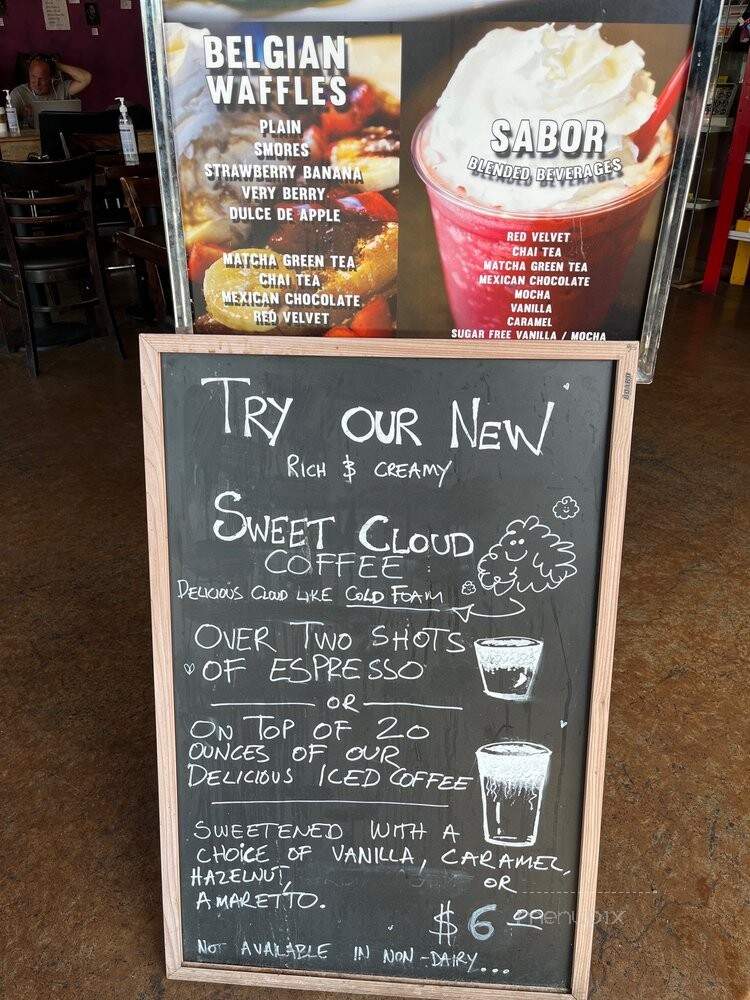 BELGIAN
WAFFLES
PLAIN
SMORES
STRAWBERRY BANANA
VERY BERRY
DULCE DE APPLE
MATCHA GREEN TEA
CHAI TEA
MEXICAN CHOCOLATE
RED VELVET
SABOR
BLENDED BEVERAGES
RED VELVET
CHAI TEA
MATCHA GREEN TEA
MEXICAN CHOCOLATE
MOCHA
VANILLA
CARAMEL
SUGAR FREE VANILLA / MOCHA
TRY OUR NEW
RICH & CREAMY
SWEET CLOUD
COFFEE
DELICIOUS CLOUD LIKE COLD FOAM
OVER TWO SHOTS
OF ESPRESSO
OR
ON TOP OF 20
OUNCES OF OUR
DELICIOUS ICED COFFEE
SWEETENED WITH A
CHOICE OF VANILLA, CARAMEL,
HAZELNUT, OR
AMARETTO.
$6.00
NOT AVAILABLE IN NON-DAIRY...
menupix